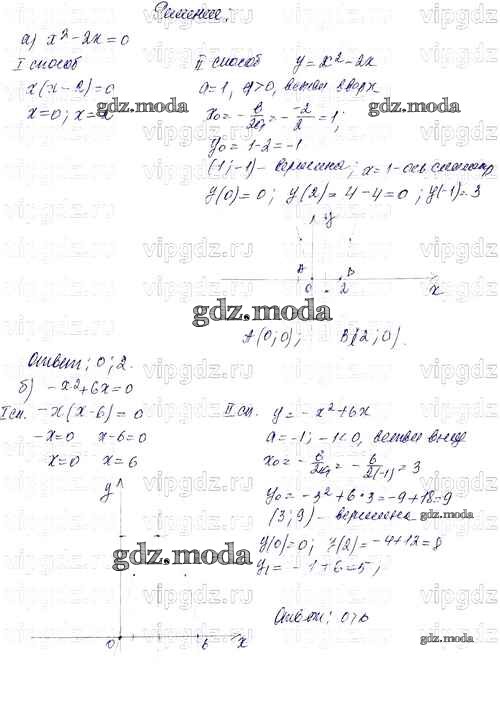 Решение:
а) x² - 2x = 0
I способ
x(x - 2) = 0
x = 0; x = 2
II способ y = x² - 2x
a = 1, a > 0, ветви вверх
x₀ = -в/2a = - -2/2 = 1;
y₀ = 1 - 2 = -1
(1; -1) - вершина; x = 1 - ось
y(0) = 0; y(2) = 4 - 4 = 0; y(-1) = 3
y
A B
0 2 x
A(0; 0); B(2; 0)
Ответ: 0; 2.
б) -x² + 6x = 0
I сп. -x(x - 6) = 0
-x = 0 x - 6 = 0
x = 0 x = 6
II сп. y = -x² + 6x
a = -1; -1 < 0, ветви вниз
x₀ = -в/2a = - 6/2(-1) = 3
y₀ = -3² + 6·3 = -9 + 18 = 9
(3; 9) - вершина
y(0) = 0; y(2) = -4 + 12 = 8
y₁ = -1 + 6 = 5;
y
0 6 x
Ответ: 0; 6
gdz.moda
vipgdz.ru